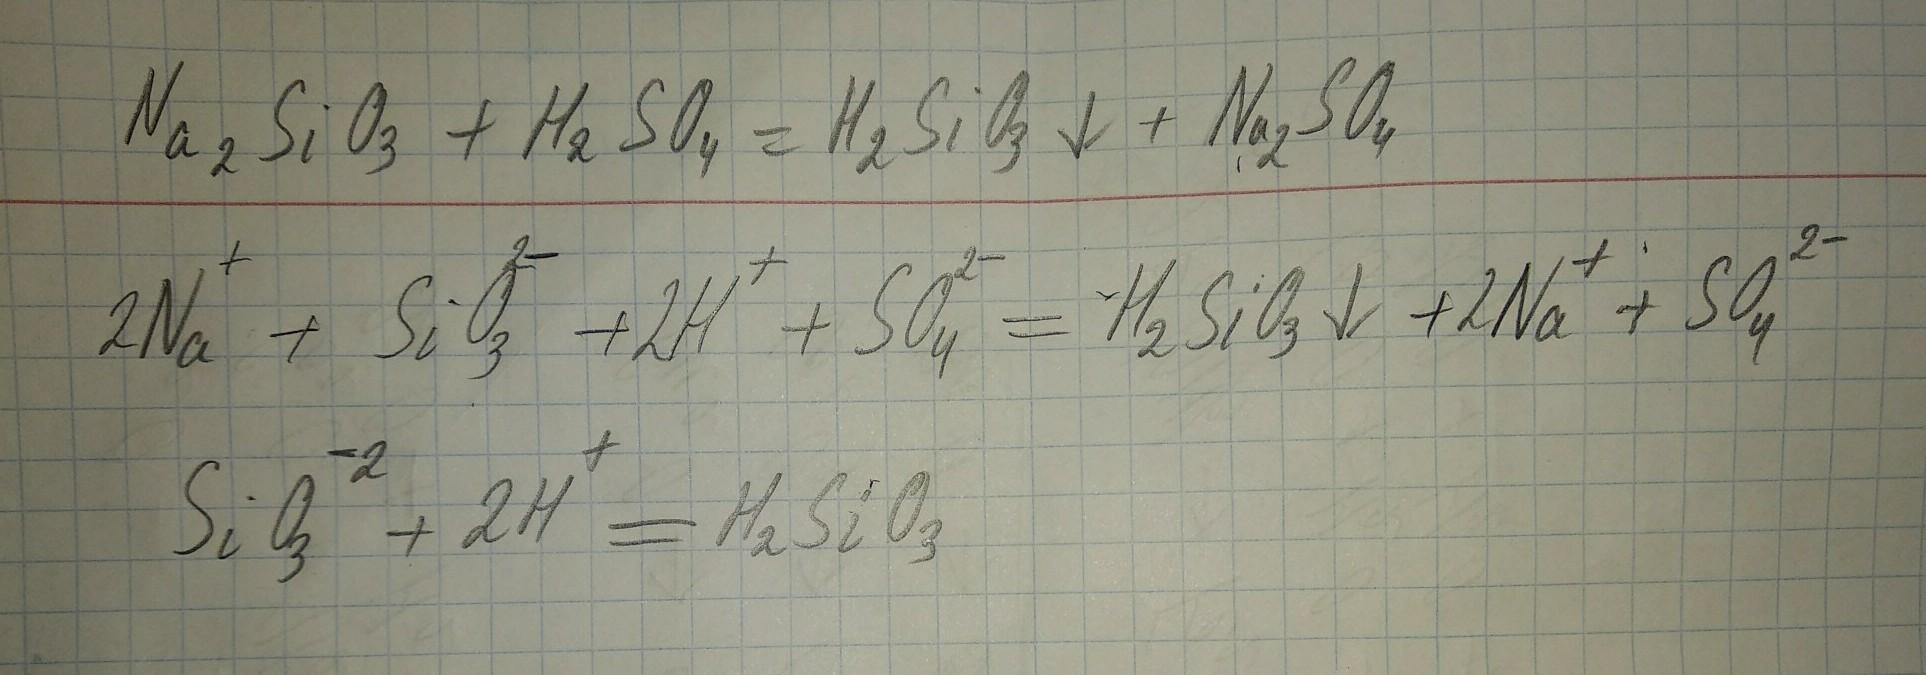 Na₂SiO₃ + H₂SO₄ = H₂SiO₃↓ + Na₂SO₄
2Na⁺ + SiO₃²⁻ + 2H⁺ + SO₄²⁻ = H₂SiO₃↓ + 2Na⁺ + SO₄²⁻
SiO₃⁻² + 2H⁺ = H₂SiO₃